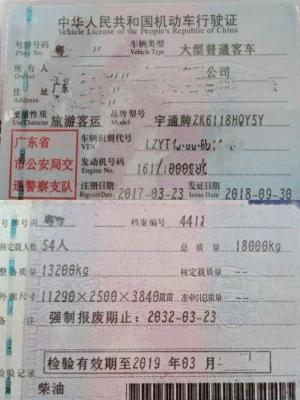 中华人民共和国机动车行驶证
Vehicle License of the People's Republic of China
号牌号码 粤 车辆类型 大型普通客车
Plate No. Vehicle Type
所有人 公司
Owner
住 广东
使用性质 旅游客运 品牌型号 宇通牌ZK6118HQY5Y
Use Character Model
广东省
市公安局交
通警察支队
车辆识别代号 LZYT
VIN
发动机号码 161
Engine No.
注册日期 2017-03-23 发证日期 2018-09-30
Register Date Issue Date
号牌号码 粤 档案编号 4411
核定载人数 54人 总质量 18000kg
整备质量 13200kg 核定载质量 --
外廓尺寸 11290×2500×3840mm 准牵引总质量 --
备注 强制报废期止：2032-03-23
检验有效期至2019年03月
检验记录
柴油